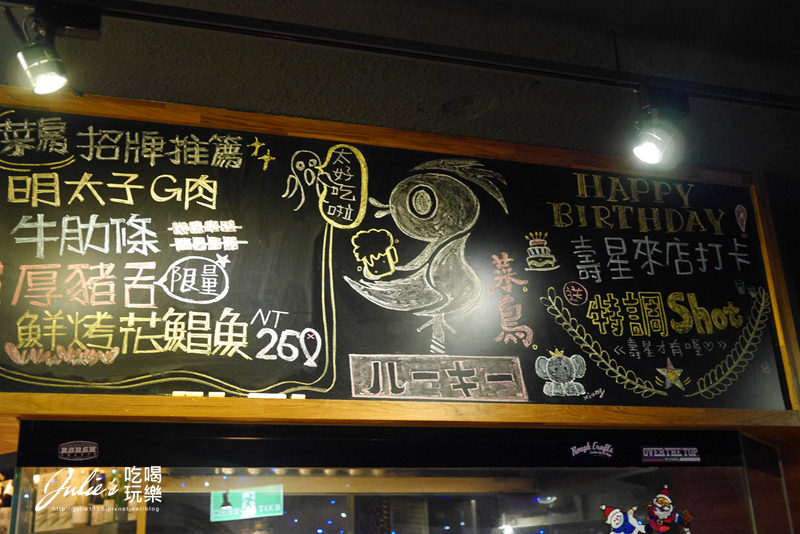 菜鳥 招牌推薦
明太子G肉
牛肋條
厚豬舌 限量
鮮烤花鯧魚 NT 260
太好吃啦
菜鳥
ルーキー
HAPPY
BIRTHDAY
壽星來店打卡
送 特調Shot
《壽星才有喔♡》
xiang
ROUGH
Rough Crafts
OVER THE TOP
Julie's 吃喝玩樂
http://julie1118.pixnet.net/blog